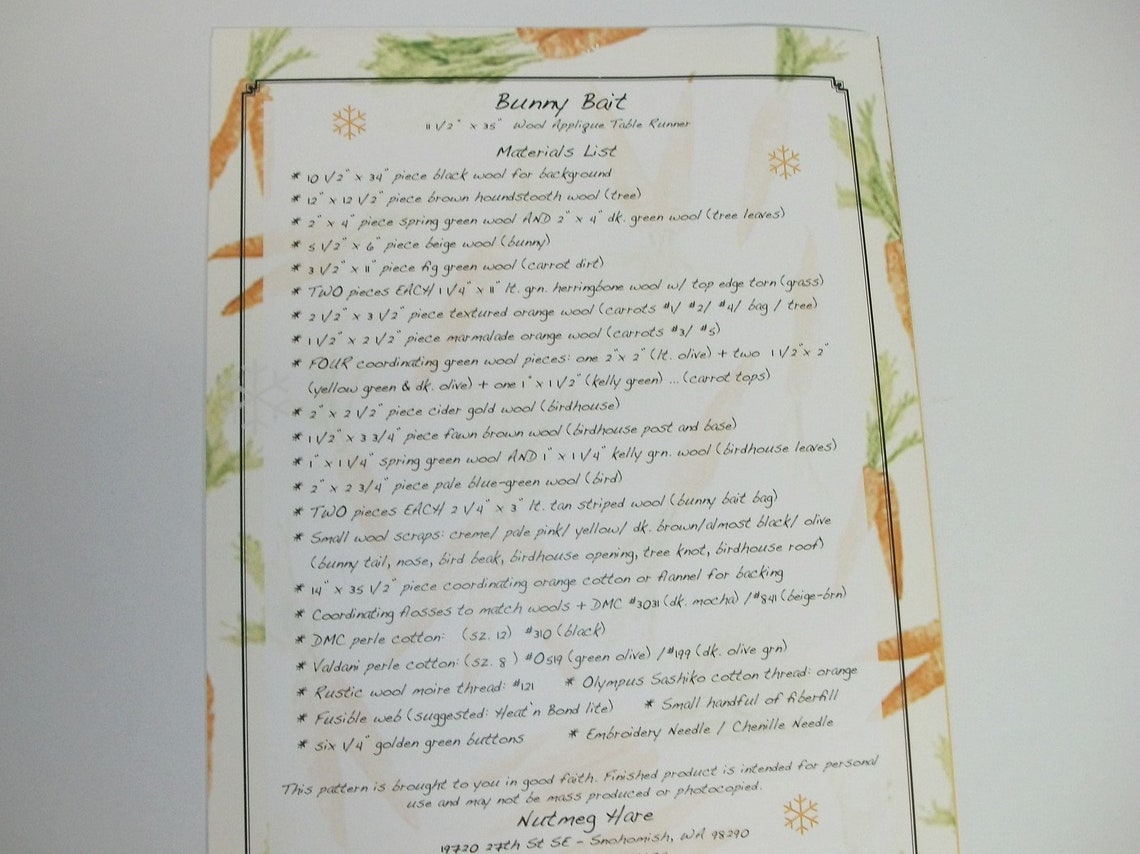 Bunny Bait
11 1/2" x 35" Wool Applique Table Runner
Materials List
* 10 1/2" x 34" piece black wool for background
* 12" x 12 1/2" piece brown houndstooth wool (tree)
* 2" x 4" piece spring green wool AND 2" x 4" dk. green wool (tree leaves)
* 5 1/2" x 6" piece beige wool (bunny)
* 3 1/2" x 11" piece fig green wool (carrot dirt)
* TWO pieces EACH 1 1/4" x 11" lt. grn. herringbone wool w/ top edge torn (grass)
* 2 1/2" x 3 1/2" piece textured orange wool (carrots #1/ #2/ #4/ bag / tree)
* 1 1/2" x 2 1/2" piece marmalade orange wool (carrots #3/ #5)
* FOUR coordinating green wool pieces: one 2" x 2" (lt. olive) + two 1 1/2" x 2"
(yellow green & dk. olive) + one 1" x 1 1/2" (kelly green) ... (carrot tops)
* 2" x 2 1/2" piece cider gold wool (birdhouse)
* 1 1/2" x 3 3/4" piece fawn brown wool (birdhouse post and base)
* 1" x 1 1/4" spring green wool AND 1" x 1 1/4" kelly grn. wool (birdhouse leaves)
* 2" x 2 3/4" piece pale blue-green wool (bird)
* TWO pieces EACH 2 1/4" x 3" lt. tan striped wool (bunny bait bag)
* Small wool scraps: creme/ pale pink/ yellow/ dk. brown/almost black/ olive
(bunny tail, nose, bird beak, birdhouse opening, tree knot, birdhouse roof)
* 14" x 35 1/2" piece coordinating orange cotton or flannel for backing
* Coordinating flosses to match wools + DMC #3031 (dk. mocha) /#841 (beige-brn)
* DMC perle cotton: (sz. 12) #310 (black)
* Valdani perle cotton: (sz. 8 ) #O519 (green olive) /#199 (dk. olive grn)
* Rustic wool moire thread: #121 * Olympus Sashiko cotton thread: orange
* Fusible web (suggested: Heat'n Bond lite) * Small handful of fiberfill
* six 1/4" golden green buttons * Embroidery Needle / Chenille Needle
This pattern is brought to you in good faith. Finished product is intended for personal
use and may not be mass produced or photocopied.
Nutmeg Hare
19720 27th St SE - Snohomish, WA 98290